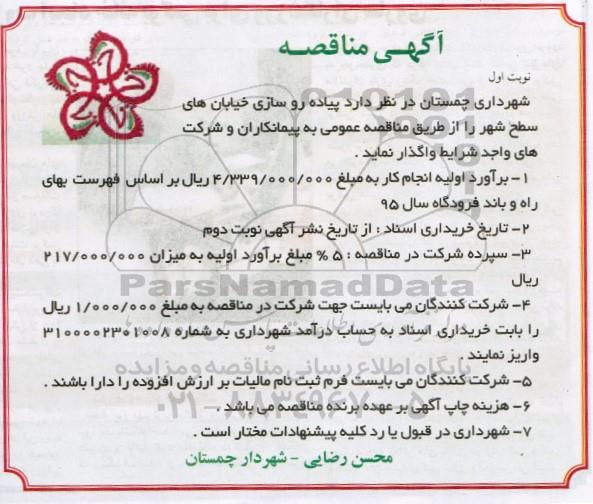 آگهـی مناقصـه
نوبت اول
شهرداری چمستان در نظر دارد پیاده رو سازی خیابان های
سطح شهر را از طریق مناقصه عمومی به پیمانکاران و شرکت
های واجد شرایط واگذار نماید .
۱- برآورد اولیه انجام کار به مبلغ ۴/۳۳۹/۰۰۰/۰۰۰ ریال بر اساس فهرست بهای
راه و باند فرودگاه سال ۹۵
۲- تاریخ خریداری اسناد : از تاریخ نشر آگهی نوبت دوم
۳- سپرده شرکت در مناقصه : ۵ % مبلغ برآورد اولیه به میزان ۲۱۷/۰۰۰/۰۰۰
ریال
ParsNamadData
۴- شرکت کنندگان می بایست جهت شرکت در مناقصه به مبلغ ۱/۰۰۰/۰۰۰ ریال
را بابت خریداری اسناد به حساب درآمد شهرداری به شماره ۳۱۰۰۰۰۲۳۰۱۰۰۸
واریز نمایند .
پایگاه اطلاع رسانی مناقصه و مزایده
۵- شرکت کنندگان می بایست فرم ثبت نام مالیات بر ارزش افزوده را دارا باشند .
۰۲۱-۸۸۳۴۹۶۷۰-۵
۶- هزینه چاپ آگهی بر عهده برنده مناقصه می باشد .
۷- شهرداری در قبول یا رد کلیه پیشنهادات مختار است .
محسن رضایی - شهردار چمستان